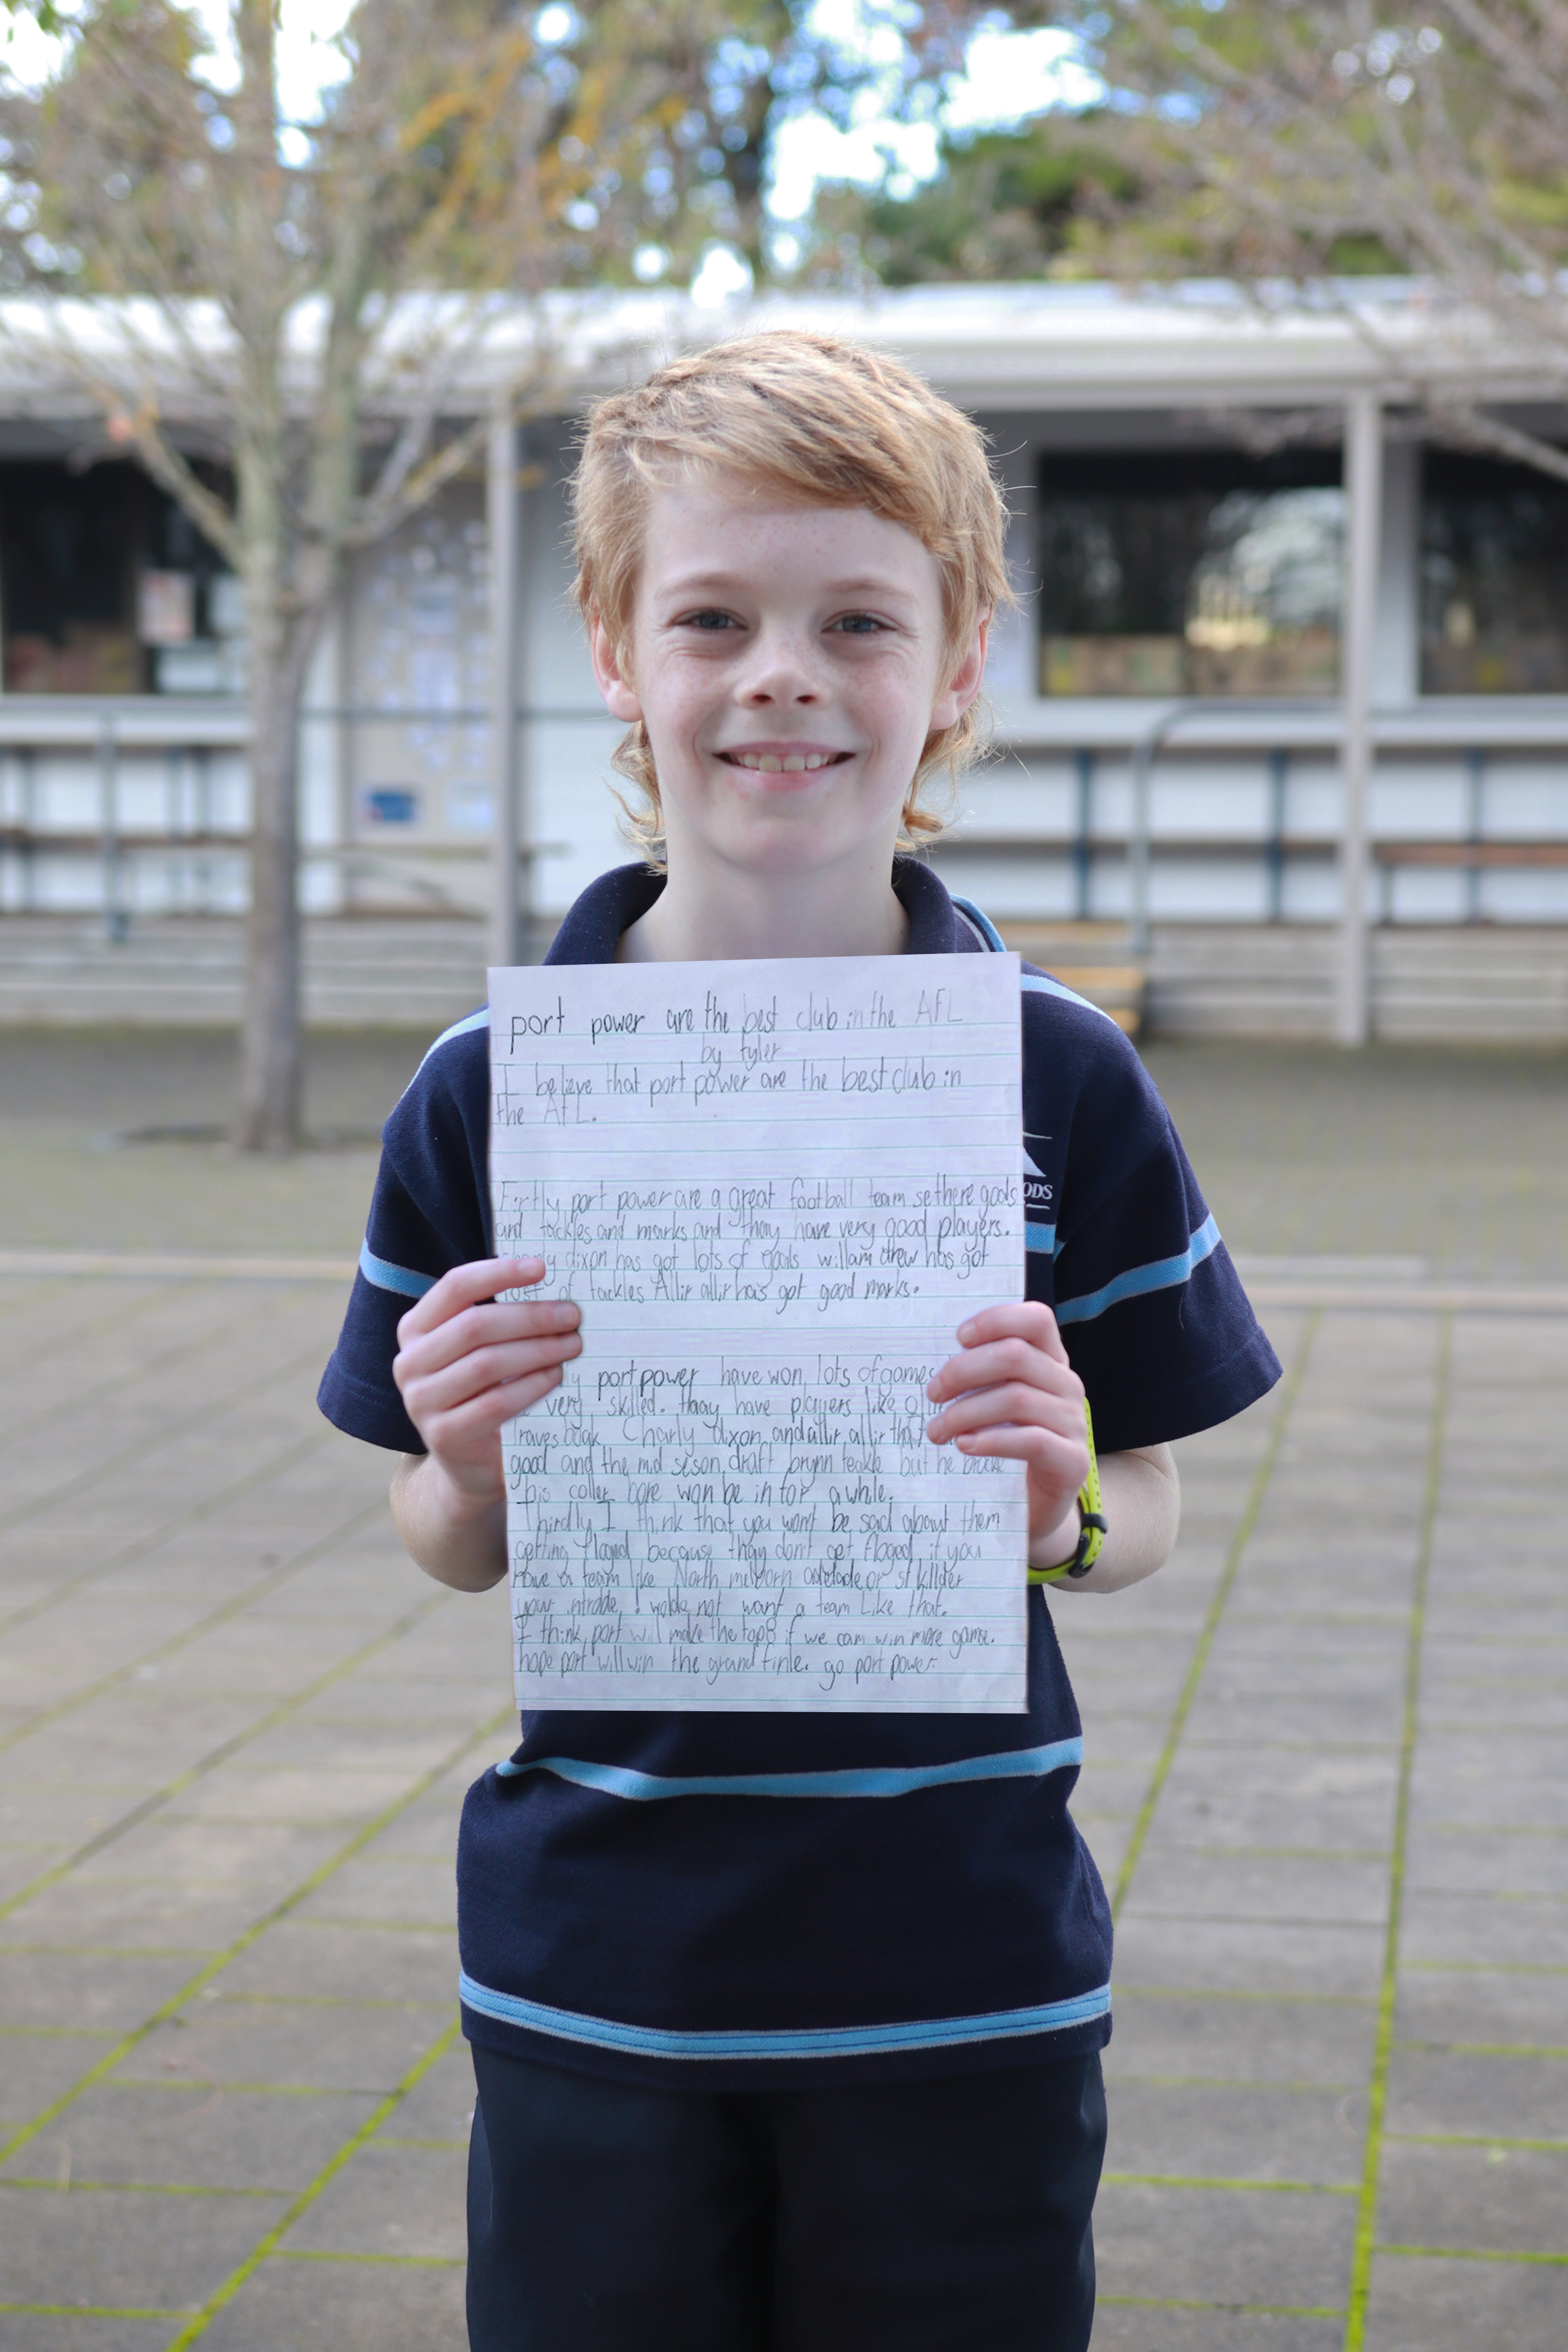 port power are the best club in the AFL
by tyler
I believe that port power are the best club in
the AFL.
Firtly port power are a great football team sethere goals
and tackles and marks and thay have very good players.
dixon has got lots of goals willam drew has got
of tackles Allir allir has got good marks.
port power have won lots of games
very skilled. thay have players like
Charly dixon and allir allir that
good and the mid seson draft brynn teakle but he broke
his coller bore won be in for a while.
Thirdly I think that you wont be sad about them
getting floged because thay don't get floged if you
have a team like North melborn adelade or st killder
your intrade. I wolde not want a team Like that.
I think port will make the top 8 if we cam win more game.
hope port will win the grand finle. go port power.
ODS